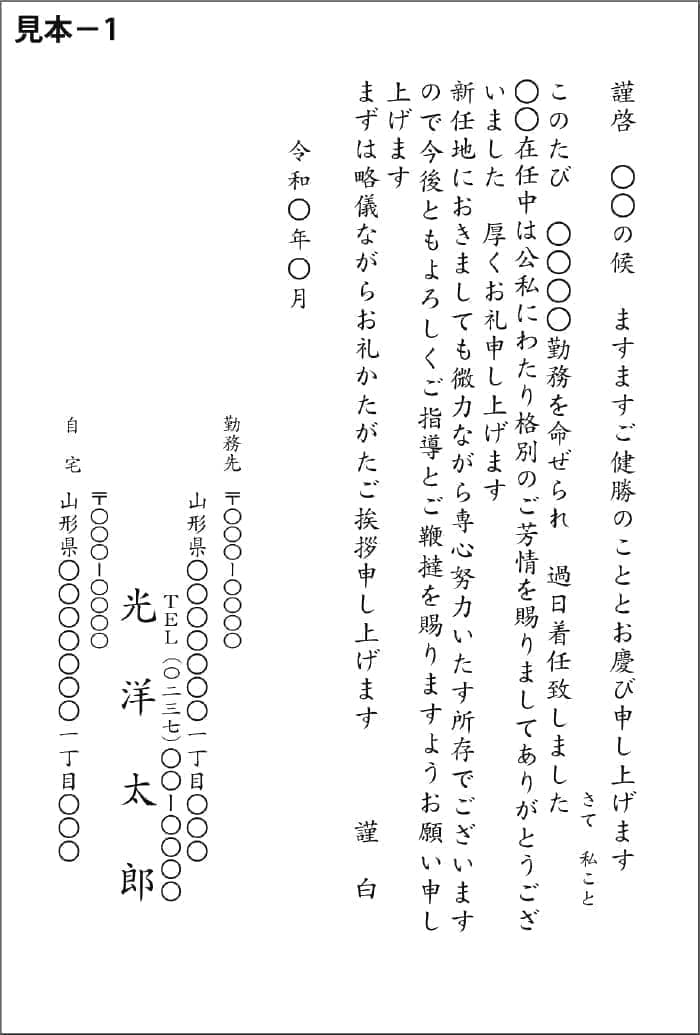 見本－1
謹啓　〇〇の候　ますますご健勝のこととお慶び申し上げます
さて　私こと
このたび　〇〇〇〇勤務を命ぜられ　過日着任致しました
〇〇在任中は公私にわたり格別のご芳情を賜りましてありがとうござ
いました　厚くお礼申し上げます
新任地におきましても微力ながら専心努力いたす所存でございます
ので今後ともよろしくご指導とご鞭撻を賜りますようお願い申し
上げます
まずは略儀ながらお礼かたがたご挨拶申し上げます　謹　白
令和〇年〇月
勤務先　〒〇〇〇－〇〇〇〇
山形県〇〇〇〇〇〇〇一丁目〇〇〇
TEL（〇二三七）〇〇－〇〇〇〇
光　洋　太　郎
〒〇〇〇－〇〇〇〇
自　宅　山形県〇〇〇〇〇〇〇一丁目〇〇〇